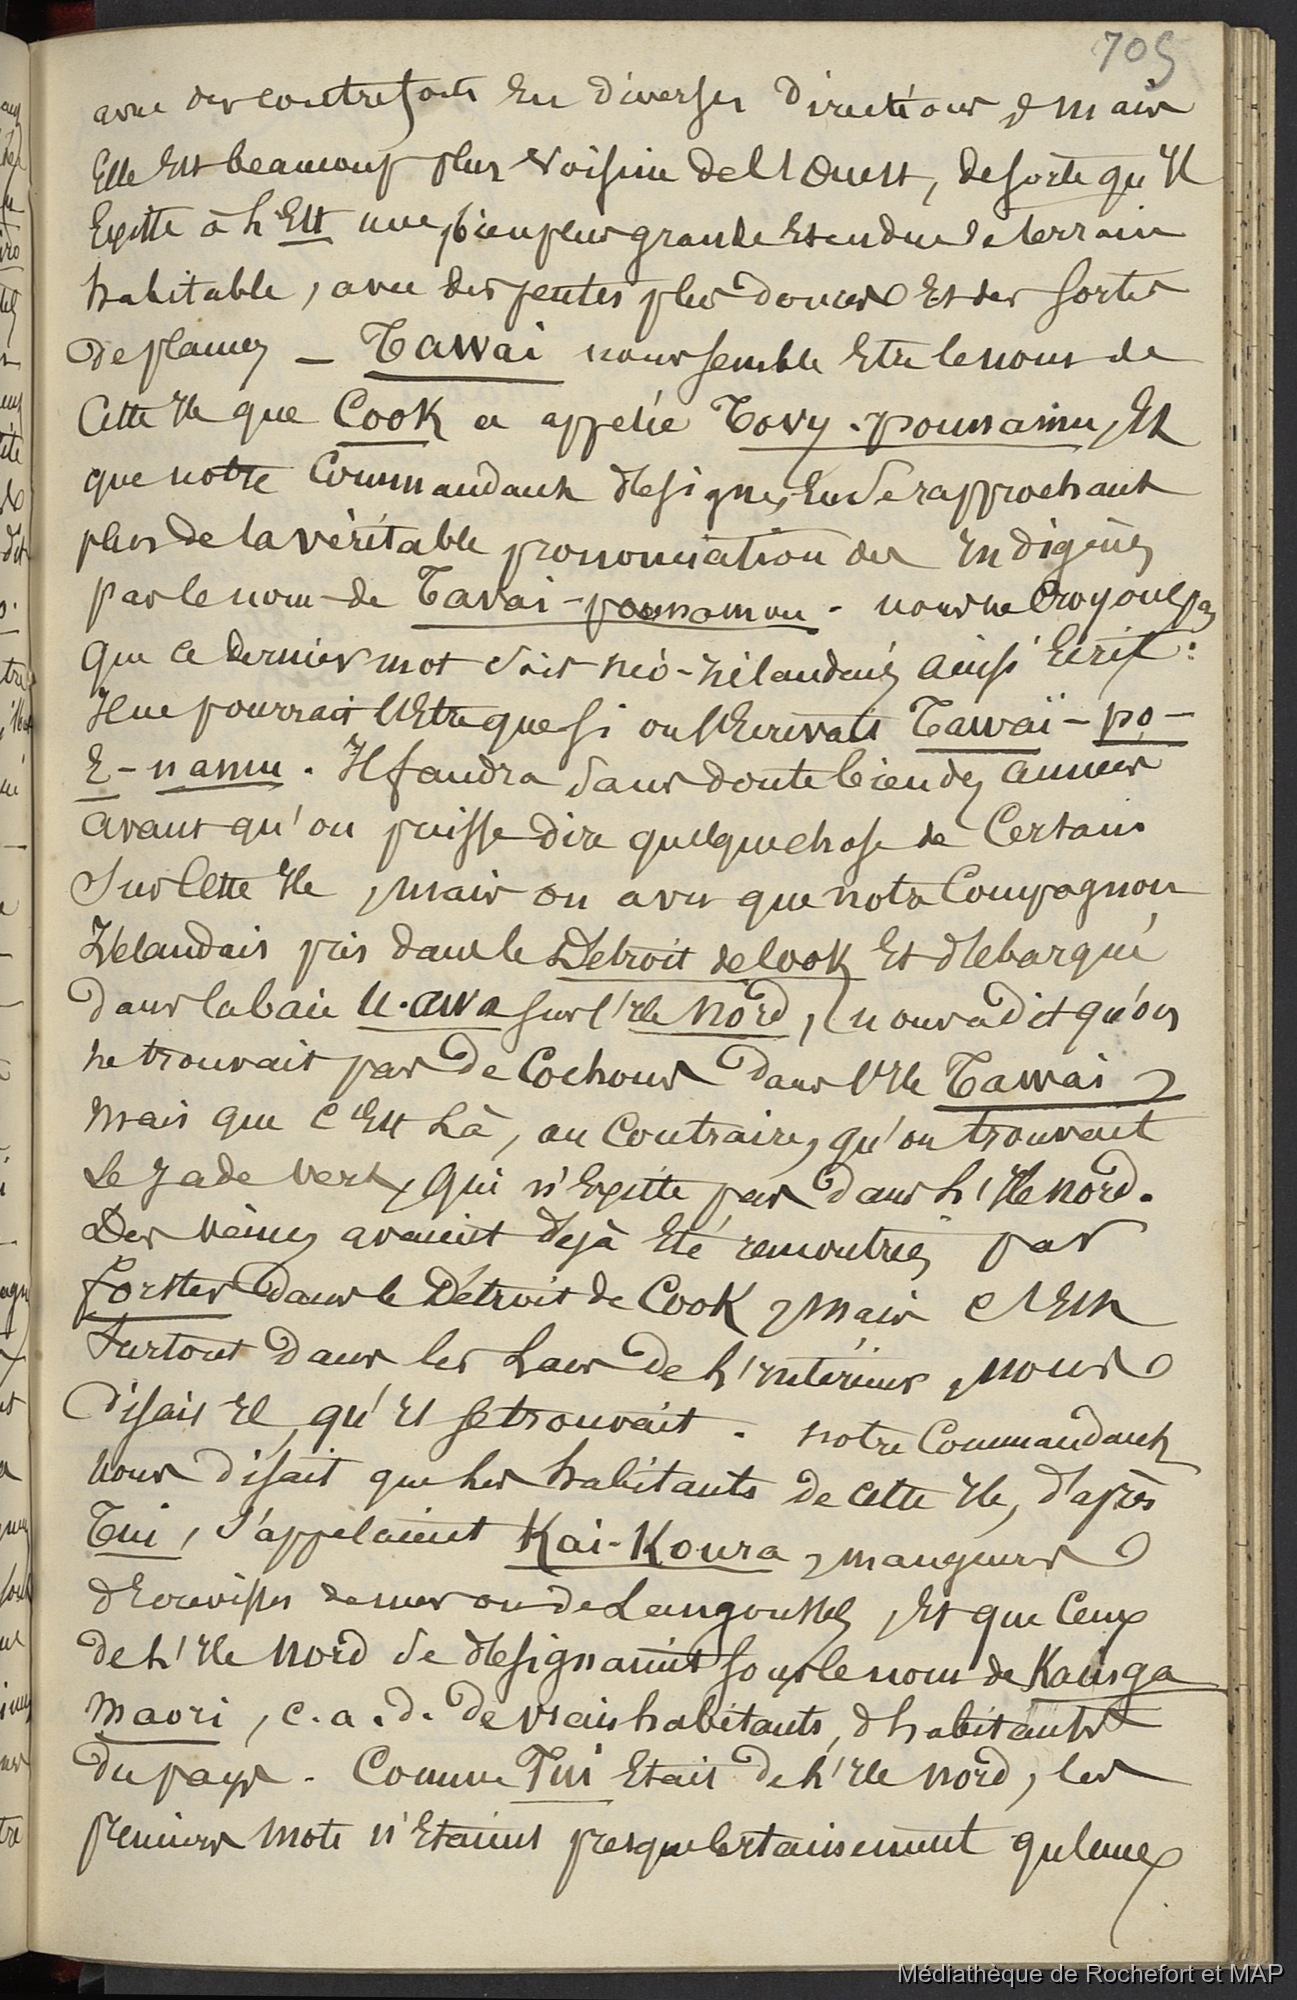 705
avec des contreforts en diverses directions, mais
elle est beaucoup plus voisine de l'Ouest, de sorte qu'il
existe à l'Est une bien plus grande etendue de terrain
habitable, avec des pentes plus douces et des sortes
de plaines — Tawai nous semble etre le nom de
cette ile que Cook a appelée Tovy-pounamu, et
que notre Commandant designe, en se rapprochant
plus de la véritable prononciation des indigènes
par le nom de Tavai-pounamou. nous ne croyons pas
que ce dernier mot soit néo-zélandais, ainsi écrit:
Il ne pourrait l'etre que si on l'ecrivait Tawaï-po-
E-namu. Il faudra sans doute bien des années
avant qu'on puisse dire quelque chose de certain
sur cette ile, mais on a vu que notre compagnon
Zélandais pris dans le Détroit de Cook et débarqué
dans la baie U-awa sur l'ile Nord, nous a dit qu'on
ne trouvait pas de cochons dans l'ile Tawai,
mais que c'est là, au contraire, qu'on trouvait
le jade vert, qui n'existe pas dans l'ile nord.
Des veines avaient déjà été rencontrées par
Forster dans le Détroit de Cook, mais c'est
surtout dans les lacs de l'intérieur, nous
disait il, qu'il se trouvait. notre Commandant
nous disait que les habitants de cette ile, d'après
Tui, s'appelaient Kai-Koura, mangeurs
d'écrevisses de mer ou de Langoustes, et que ceux
de l'ile Nord se désignaient sous le nom de Kainga
maori, c.a.d. de vrais habitants, d'habitants
du pays. Comme Tui etait de l'ile nord, les
premiers mots n'étaient presque certainement que ceux
Médiathèque de Rochefort et MAP